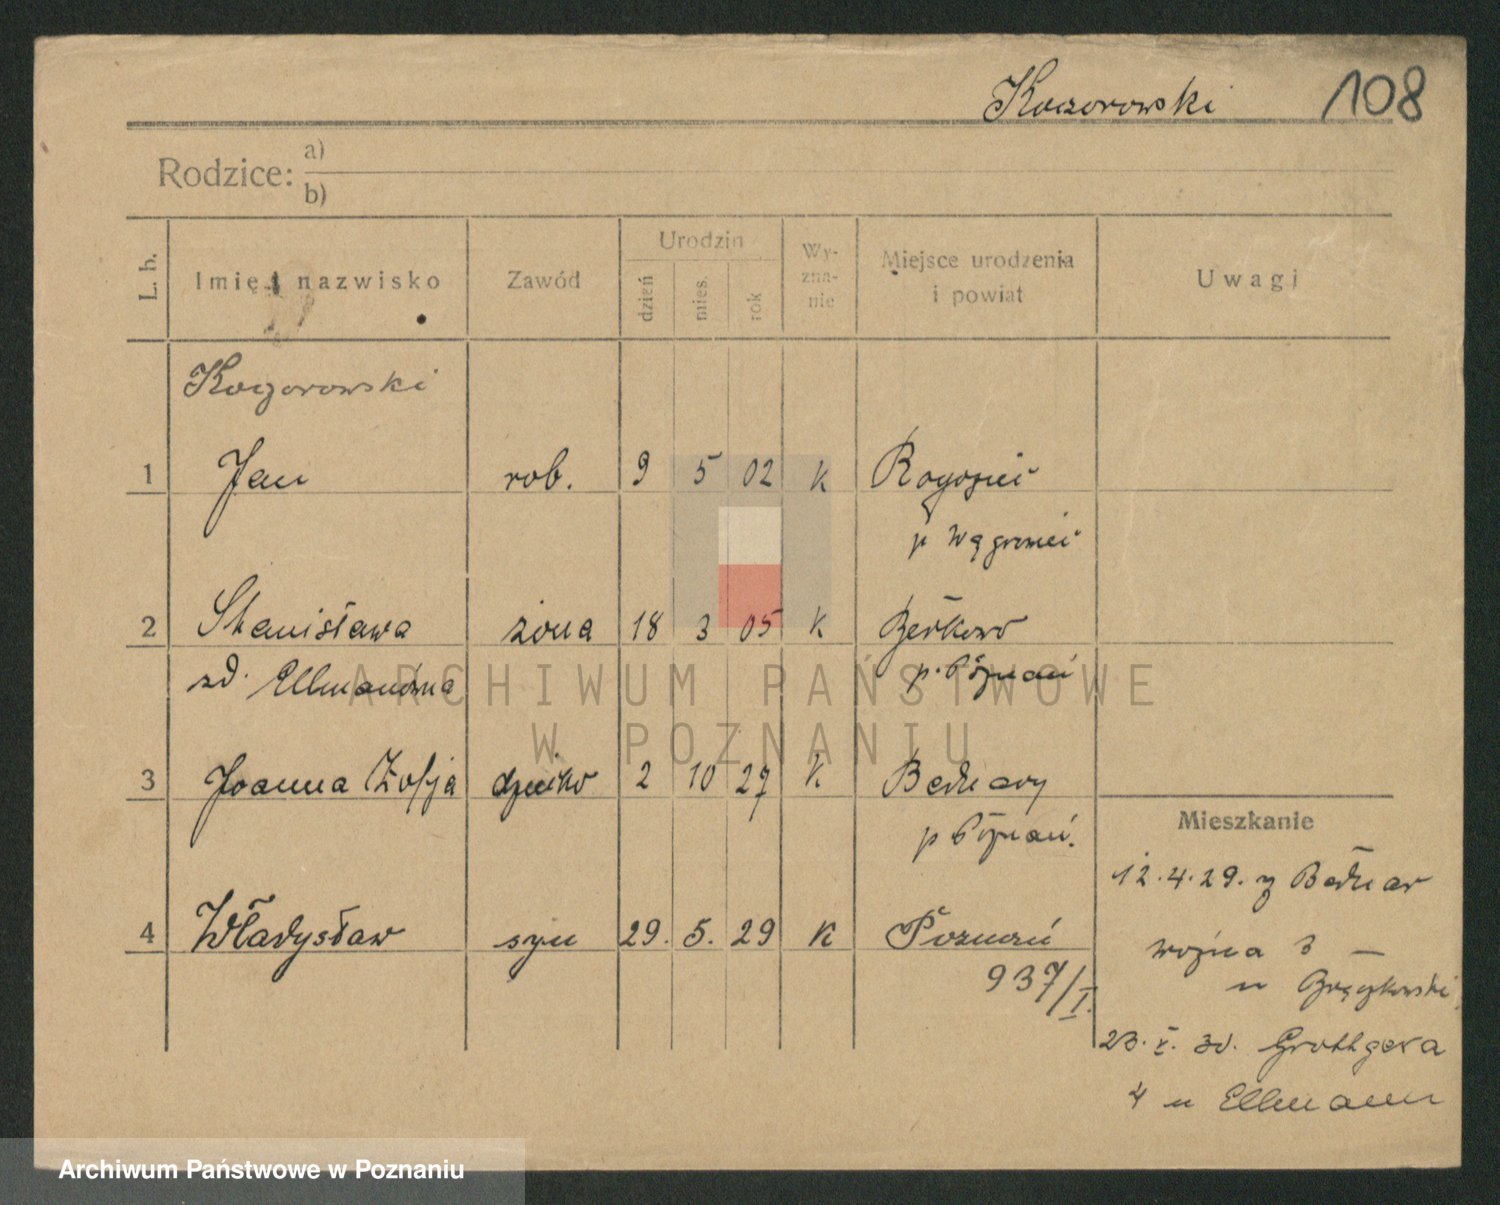 Koczorowski 108
Rodzice: a)
b)
L. b. Imię i nazwisko Zawód Urodzin dzień mies. rok Wy-zna-nie Miejsce urodzenia i powiat Uwagi
Koczorowski
1 Jan rob. 9 5 02 K
p Wągrowiec
2 Stanisława żona 18 3 05 K
zd. Ellmanówna p. Poznań
3 Joanna Zofja dziecko 2 10 27 K Bednary
p Poznań.
Mieszkanie
12.4.29. z Bednar
4 Władysław syn 29. 5. 29 K Poznań
937/I.
3 –
u
23. X. 30. Grottgera
4 u Ellmann
ARCHIWUM PAŃSTWOWE
W POZNANIU
Archiwum Państwowe w Poznaniu